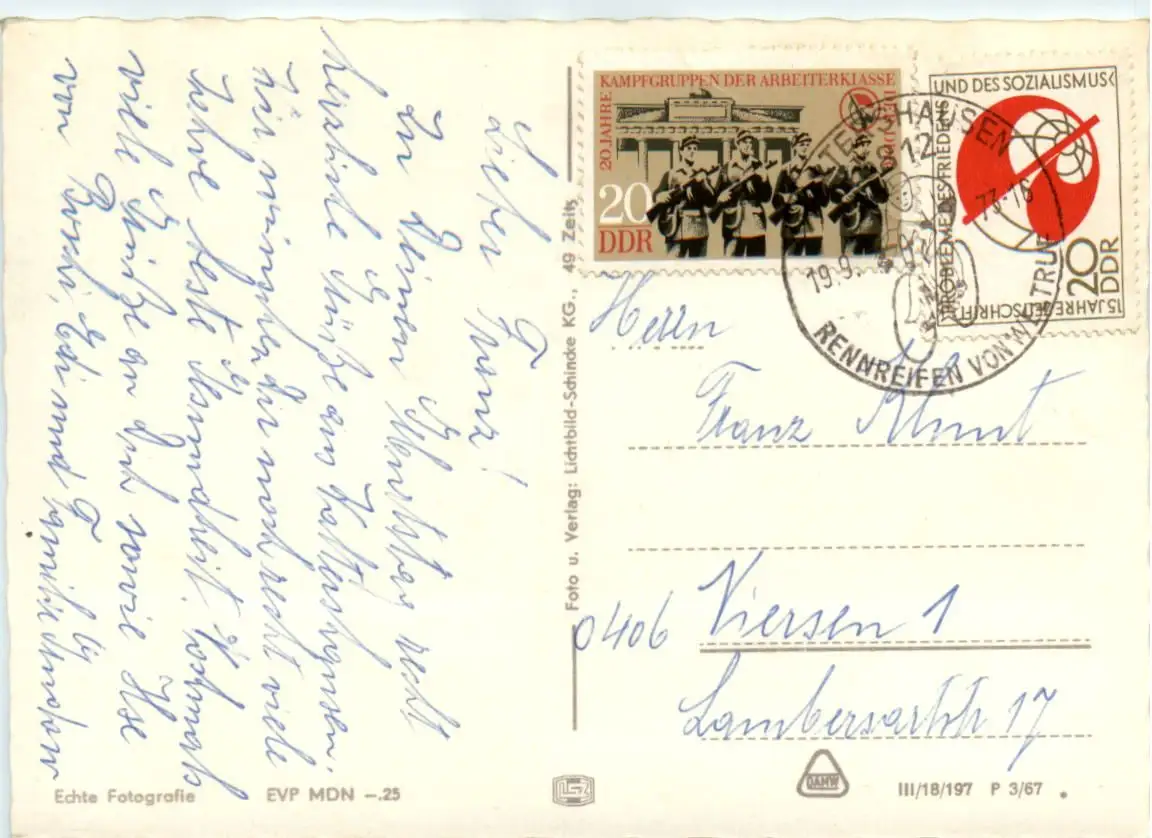 Lieber Franz!
Zu Deinem Geburtstag recht
herzliche Grüße aus Waltershausen.
Wir wünschen Dir noch recht viele
Jahre beste Gesundheit.
viele Grüße an Dich sowie Ilse
von
und
20 JAHRE
KAMPFGRUPPEN DER ARBEITERKLASSE
DER DDR
20
DDR
PROBLEME DES FRIEDENS
UND DES SOZIALISMUS
15 JAHRE ZEITSCHRIFT
20
DDR
WALTERSHAUSEN
19.9.73-16
RENNREIFEN VON WELTRUF
Herrn
Franz Klunt
0406 Viersen 1
Lambersartstr 17
Foto u. Verlag: Lichtbild-Schincke KG., 49 Zeitz
Echte Fotografie EVP MDN –.25
DAMW
III/18/197 P 3/67